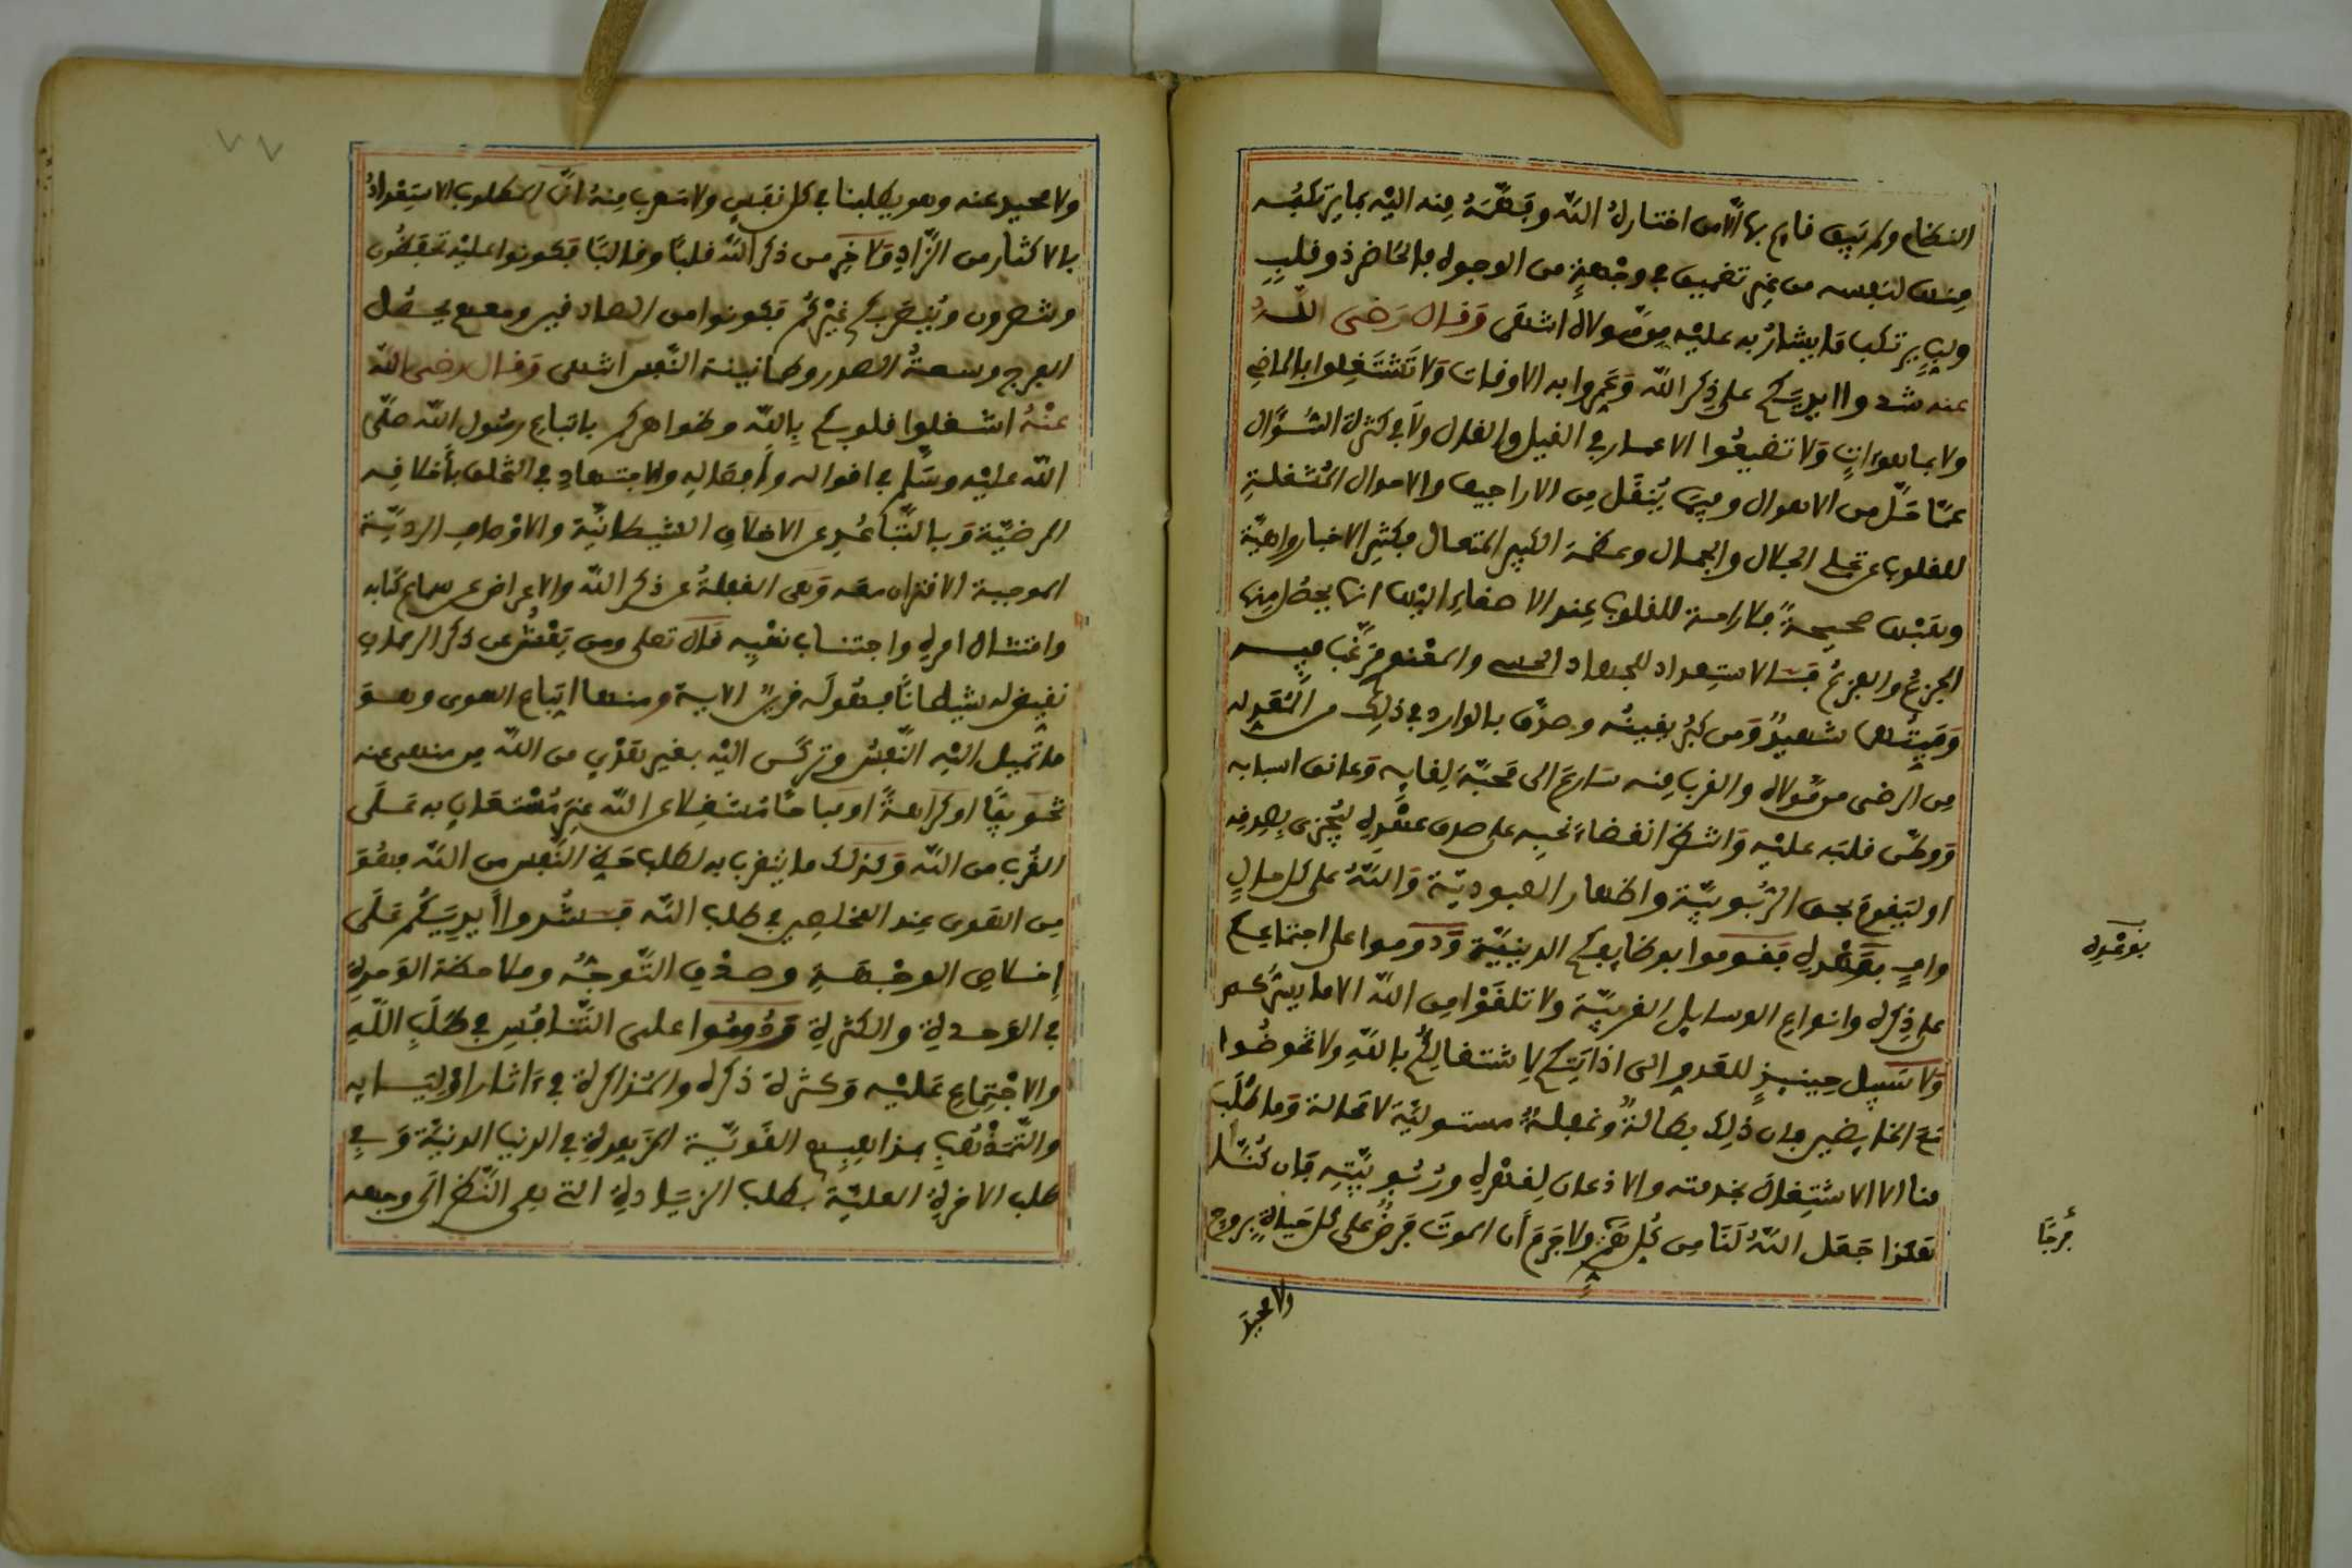 النظام ولم يبق قايم بها الا من اختاره الله وفهمه منه اليه بما يرتكبه
منها لنفسه من غير تضييق في وجهة من الوجوه فالحاضر ذو قلب
يرتكب ما يشار به عليه من مولاه انتهى وقال رضى الله
عنه شدوا ايديكم على ذكر الله وعمروا به الاوقات ولا تشتغلوا بالماضي
ولا بما هو ات ولا تضيعوا الاعمار في القيل والقال ولا في كثرة السؤال
عما قل من الاهوال وفيما ينقل من الاراجيف والاموال المشغلة
للقلوب عن تجلي الجلال والجمال وعظمة الكبير المتعال فكثير الاخبار واهية
وهبها صحيحة فلا رامة للقلوب عند الاصغاء اليها انما يحصل منها
الجزع والفزع فالاستعداد للجهاد الحسى والمعنوي مرغب فيه
وميتها شهيد ومن كبر يقينه وصدق بالوارد في ذلك من التقوله
من الرضى من مولاه والقرب منه سارع الى محبة لقايه وعانق اسبابه
ووطن قلبه عليه وانتظر انقضاء نحبه على صدق عهده ليجزى بصدقه
او ليقوم بحق الربوبية واظهار العبودية والله على كل حال
واف بعهده فقوموا بوظايفكم الدينية ودوموا على اجتماعكم
على ذكره وانواع الوسايل القربية ولا تلقوا من الله الا ما يسركم
ولا سبيل حينيذ للعدو الى اذايتكم لاشتغالكم بالله ولا تخوضوا
مع الخايضين فان ذلك بطالة وغفلة مستولية لا محالة وما طلب
منا الا الاشتغال بخدمته والاذعان لقهره وربوبيته فان كنا
هكذا جعل الله لنا من كل هم ولا جرم أن الموت فرض على كل حياة بروح
بوعده
فرجا
ولا محيد
٧٧
ولا محيد عنه وهو يطلبنا في كل نفس ولا مهرب منه انما المطلوب الاستعداد
بالاكثار من الزاد ولا خير من ذكر الله قلبا وقالبا فكونوا عليه تحفظون
وتنصرون وينصر بكم غيركم فكونوا من الصادقين ومعهم يحصل
الفرج وسعة الصدر وطمانينة النفس انتهى وقال رضى الله
عنه اشغلوا قلوبكم بالله وظواهركم باتباع رسول الله صلى
الله عليه وسلم في اقواله وأفعاله والاجتهاد في التخلق بأخلاقه
المرضية وبالتباعد عن الاخلاق الشيطانية والاوصاف الردية
الموجبة الاقتران معه وهى الغفلة عن ذكر الله والاعراض عن سماع كتابه
وامتثال امره واجتناب نهيه قال تعلى ومن يعش عن ذكر الرحمان
نقيض له شيطانا فهو له قرين الاية ومنها اتباع الهوى وهو
ما تميل اليه النفس وتركن اليه بغير هدى من الله من منهى عنه
تحريما او كراهة او مباحا مشغلا عن الله غير مستعان به على
القرب من الله وكذلك ما يتقرب به لطلب حظ النفس من الله فهو
من الهوى عند المخلصين في طلب الله فشدوا أيديكم على
إخلاص الوجهة وصدق التوجه وملاحظة الوحدة
في الوحدة والكثرة ودوموا على التنافس في طلب الله
والاجتماع عليه وكثرة ذكره والمذاكرة في ءاثار اوليايه
والتمذهب بمذاهبهم القوية المزهدة في الدنيا الدنية وفي
طلب الاخرة العلية بطلب الزيادة التي هى النظر الى وجهه